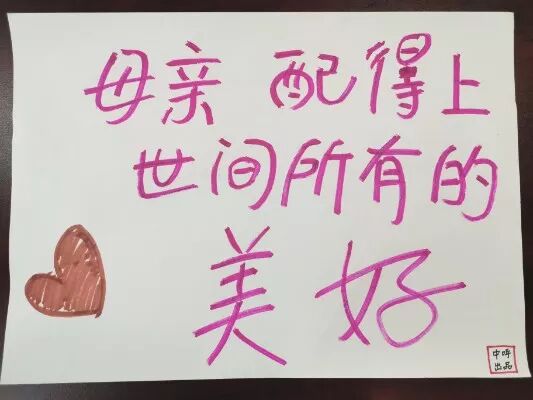 母亲 配得上
世间所有的
美好
中呼
出品